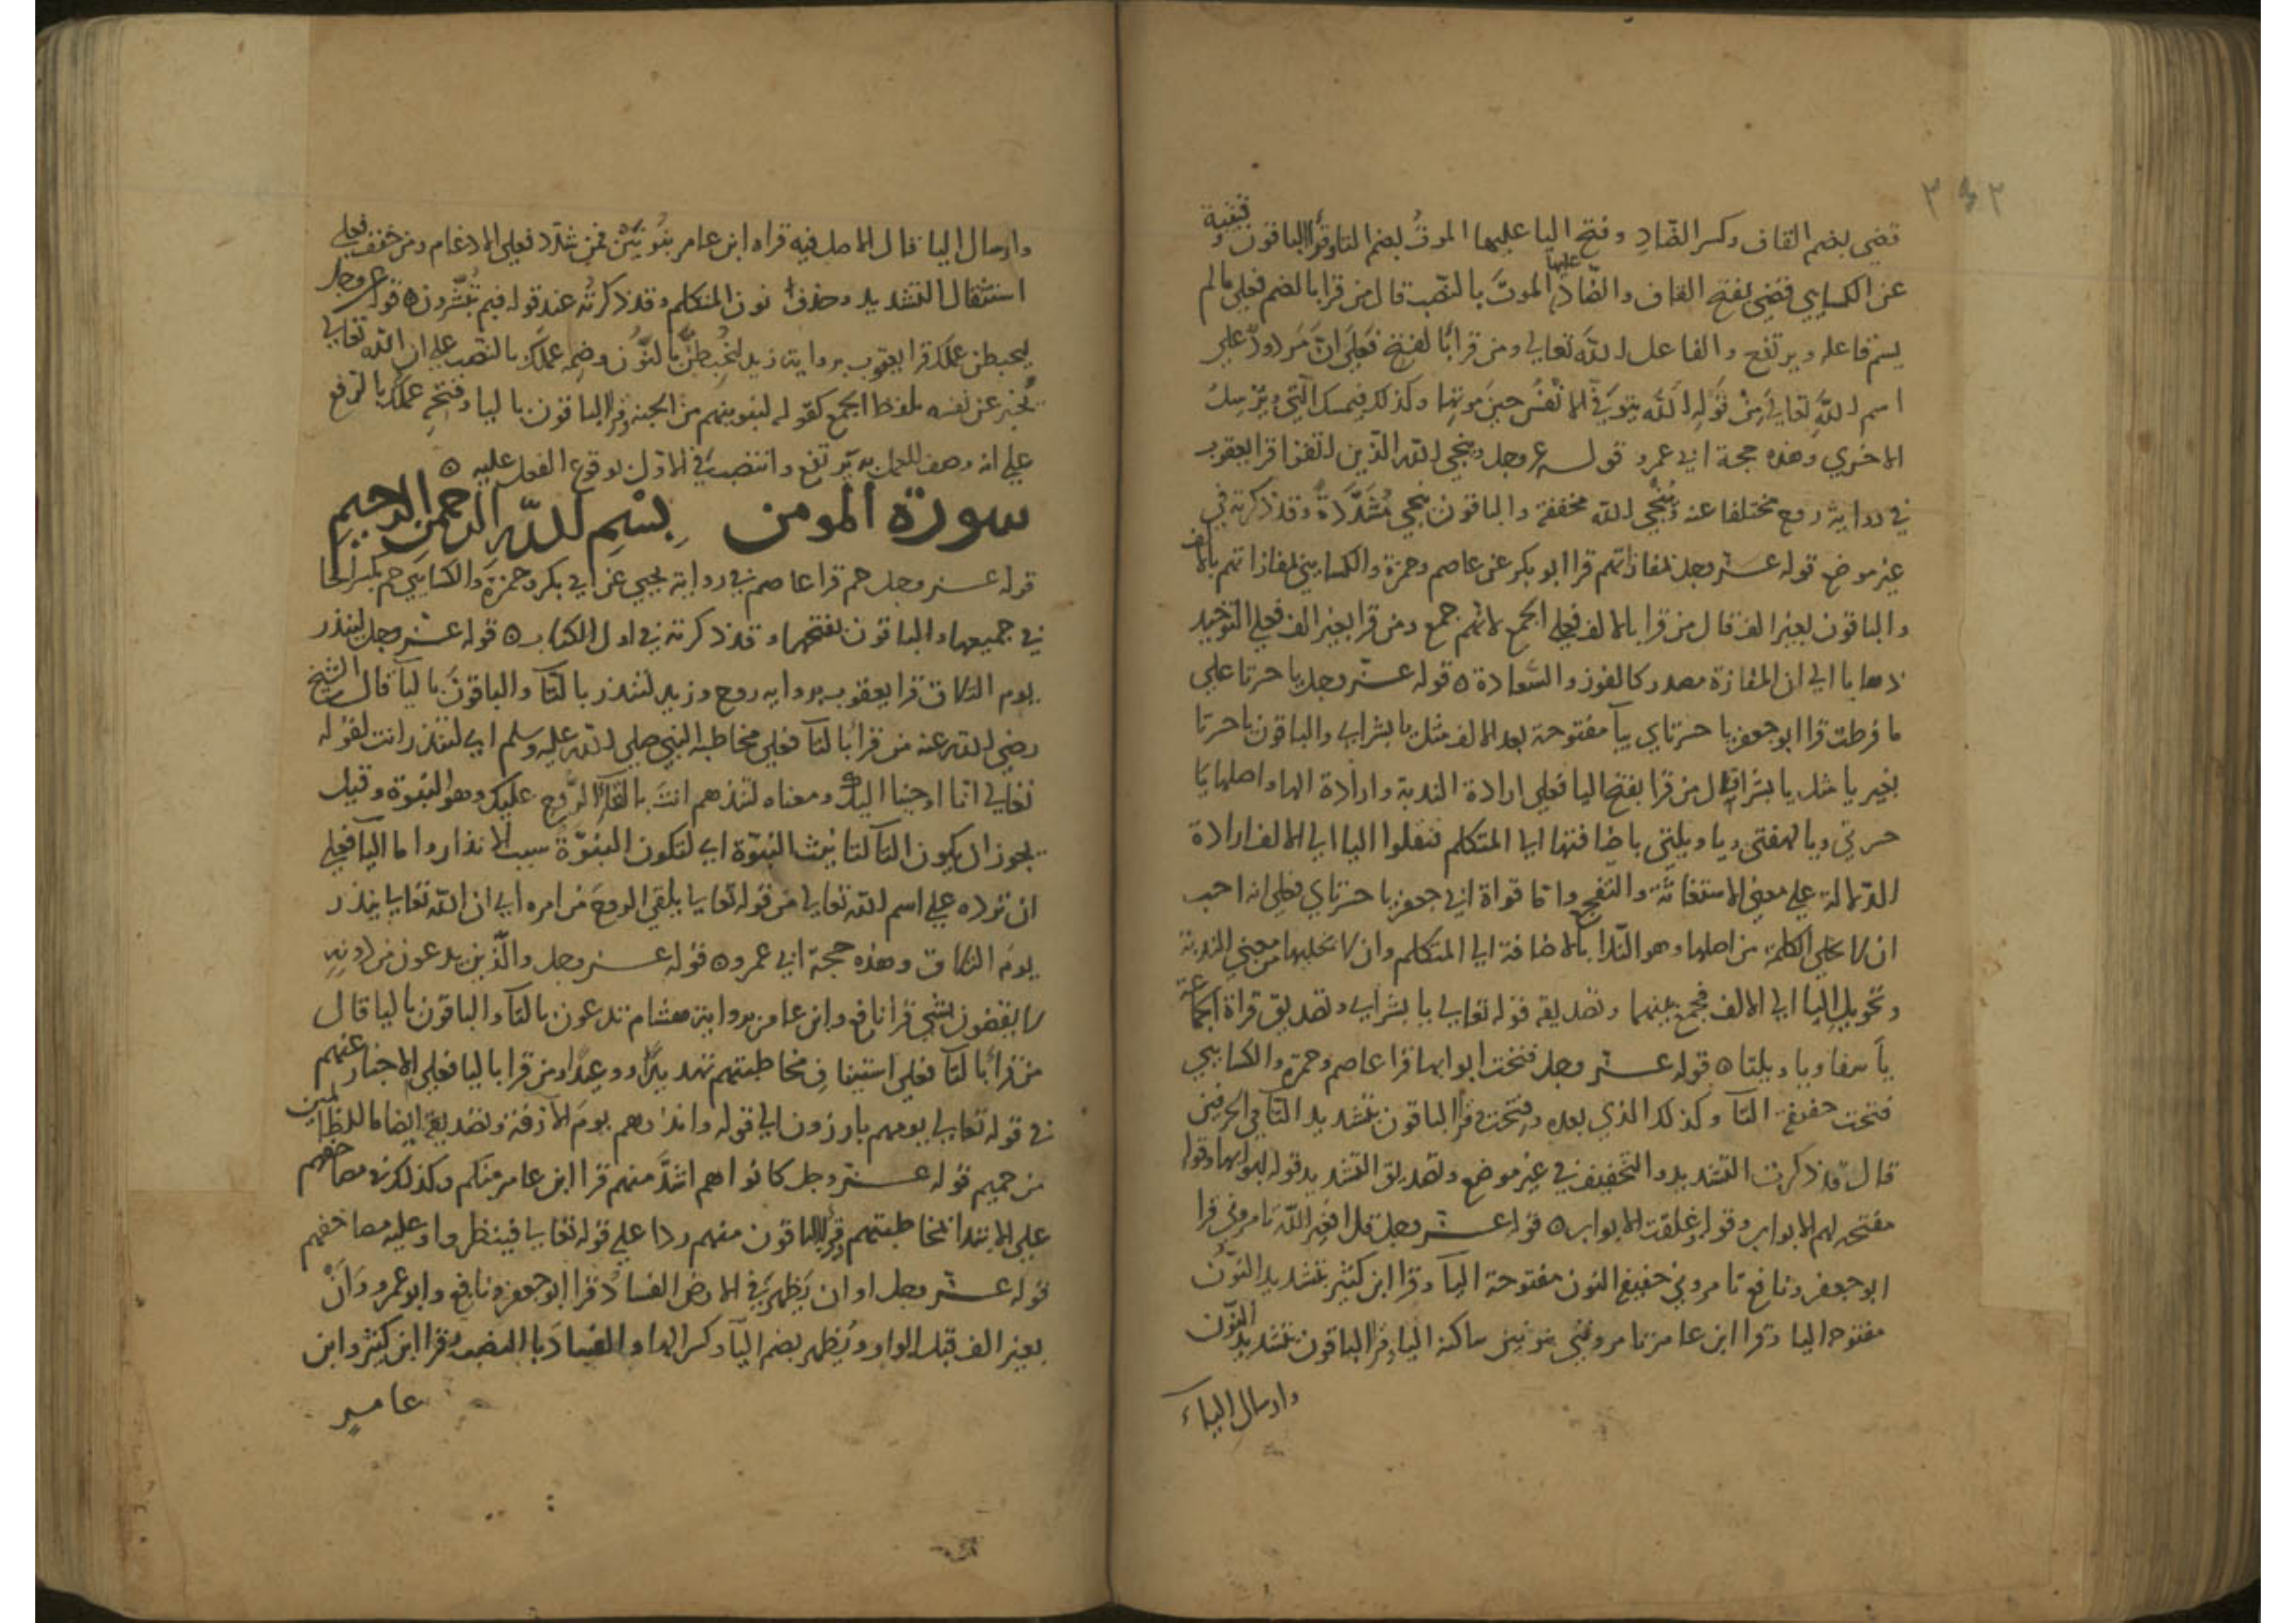 ٣٤٢
قضي بضم القاف وكسر الضّادِ وفتح اليا عليها الموتُ بضم التا وقرأ الباقون وقتيبة
عن الكسايي قضي بفتح القاف والضّاد عليها الموتَ بالنصب قال من قرا بالضم فعلي ما لم
يسم فاعله ويرتفع والفاعل الله تعالي ومن قرأ بالفتح فعلي انّ مردودٌ علي
اسم الله تعالي من قوله الله يتوفي الانفس حين موتها وكذلك فيمسك الّتي ويرسل
الاخري وهذه حجة ابي عمرو قوله عز وجل وينجي الله الذين اتقوا قرا يعقوب
في رواية روح مختلفا عنه ويُنْجي الله مخففة والباقون ينجي مُشَدَّدَةٌ وقد ذكرته في
غير موضع قوله عز وجل بمفازاتهم قرا ابو بكر عن عاصم وحمزة والكسايي بمفازاتهم بالالف
والباقون بغير الف قال من قرا بالالف فعلي الجمع لانهم جمع ومن قرا بغير الف فعلي التوحيد
ذهابا الي ان المفازة مصدر كالفوز والسّعادة ٥ قوله عز وجل يا حسرتا علي
ما فرطت قرا ابو جعفر يا حسرتاي بيآ مفتوحة بعد الالف مثل يا بشراي والباقون يا حسرتا
بغير يا مثل يا بشرا قال من قرا بفتح اليا فعلي ارادة الندبة وارادة الها واصلها يا
حسرتي ويا لهفتي ويا ويلتي باضافتها الي المتكلم فنقلوا اليا الي الالف ارادة
للدّلالة علي معني الاستغاثة والتفجع واما قراة ابي جعفر يا حسرتاي فعلي انه احب
ان لا يخلي الكلمة من اصلها وهو النّدا بالاضافة الي المتكلم وان لا يخليها من معني الندبة
وتحويل اليا الي الالف فجمع بينهما وتصديقه قوله تعالي يا بشراي وتصديق قراة الجماعة
يا اسفا ويا ويلتا ٥ قوله عز وجل فتحت ابوابها قرا عاصم وحمزة والكسايي
فتحت خفيفة التآ وكذلك الذي بعده وفتحت قرا الباقون بتشديد التآ في الحرفين
قال قد ذكرت التشديد والتخفيف في غير موضع وتصديق التشديد قوله ابوابها وقوله
مفتحه لهم الابواب وقوله وغلقت الابواب ٥ قوله عز وجل قل افغير الله تامروني قرا
ابو جعفر ونافع تامروني خفيفة النون مفتوحة اليآ وقرا ابن كثير بتشديد النّون
مفتوحه اليا وقرا ابن عامر تامرونني بنونين ساكنة اليا وقرا الباقون بتشديد النّون
وارسال اليآء
وارسال اليا قال الاصل فيه قراه ابن عامر بنُونَيْن فمن شدّد فعلي الادغام ومن خفف فعلي
استثقال التشديد وحذف نون المتكلم وقد ذكرته عند قوله فبم تُبَشِّرون ٥ قوله عز وجل
ليحبطن عملك قرا يعقوب برواية زيد لنُحْبِطنَّ بالنّون وضمه عملَك بالنّصب علي ان الله تعالي
يُخبر عن نفسه بلفظ الجمع كقوله لنبوينهم من الجنه وقرا الباقون باليا وفتحه عملُك بالرفع
علي انه وصف للعمل به يرتفع وانتصب في الاول بوقوع الفعل عليه ٥
سورة المومن بسم الله الرحمن الرحيم
قوله عز وجل حم قرا عاصم في رواية يحيي عن ابي بكر وحمزة والكسايي حم بكسر الحا
في جميعها والباقون بفتحها وقد ذكرته في اول الكتاب ٥ قوله عز وجل لينذر
يوم التلاق قرا يعقوب برواية روح وزيد لتنذر بالتآ والباقون باليآ قال الشيخ
رضي الله عنه من قرأ بالتآ فعلي مخاطبة النبي صلي الله عليه وسلم اي لتنذر انت لقوله
تعالي انا اوحينا اليك ومعناه لتنذهم انتَ بالقآ الرُّوح عليك وهو النبوة وقيل
يجوز ان يكون التآ لتانيث النبوّة اي لتكون النبوّة سبب الانذار واما اليآ فعلي
ان ترده علي اسم الله تعالي من قوله تعالي يلقي الروحَ من امره اي ان الله تعالي ينذر
يومَ التلاق وهذه حجة ابي عمرو ٥ قوله عز وجل والّذين يدعون من دونه
لا يقضون بشي قرا نافع وابن عامر برواية هشام تدعون بالتآ والباقون باليا قال
من قرأ بالتآ فعلي استيناف مخاطبتهم تهديدًا ووعيدًا ومن قرا باليا فعلي الاخبار عنهم
في قوله تعالي يومهم بارزون الي قوله وانذرهم يومَ الآزفة وتصديقه ايضا ما للظالمين
من حميم قوله عز وجل كانوا هم اشدَّ منهم قرا ابن عامر منكم وكذلك في مصاحفهم
علي الابتدا بمخاطبتهم وقرا الباقون منهم ردا علي قوله تعالي فينظروا وعليه مصاحفهم
قوله عز وجل او ان يَظهر في الارض الفسادُ قرا ابو جعفر ونافع وابو عمرو وَأَنْ
بغير الف قبل الواو ويُظهر بضم اليآ وكسر الها والفسادَ بالنصب وقرا ابن كثير وابن
عامر